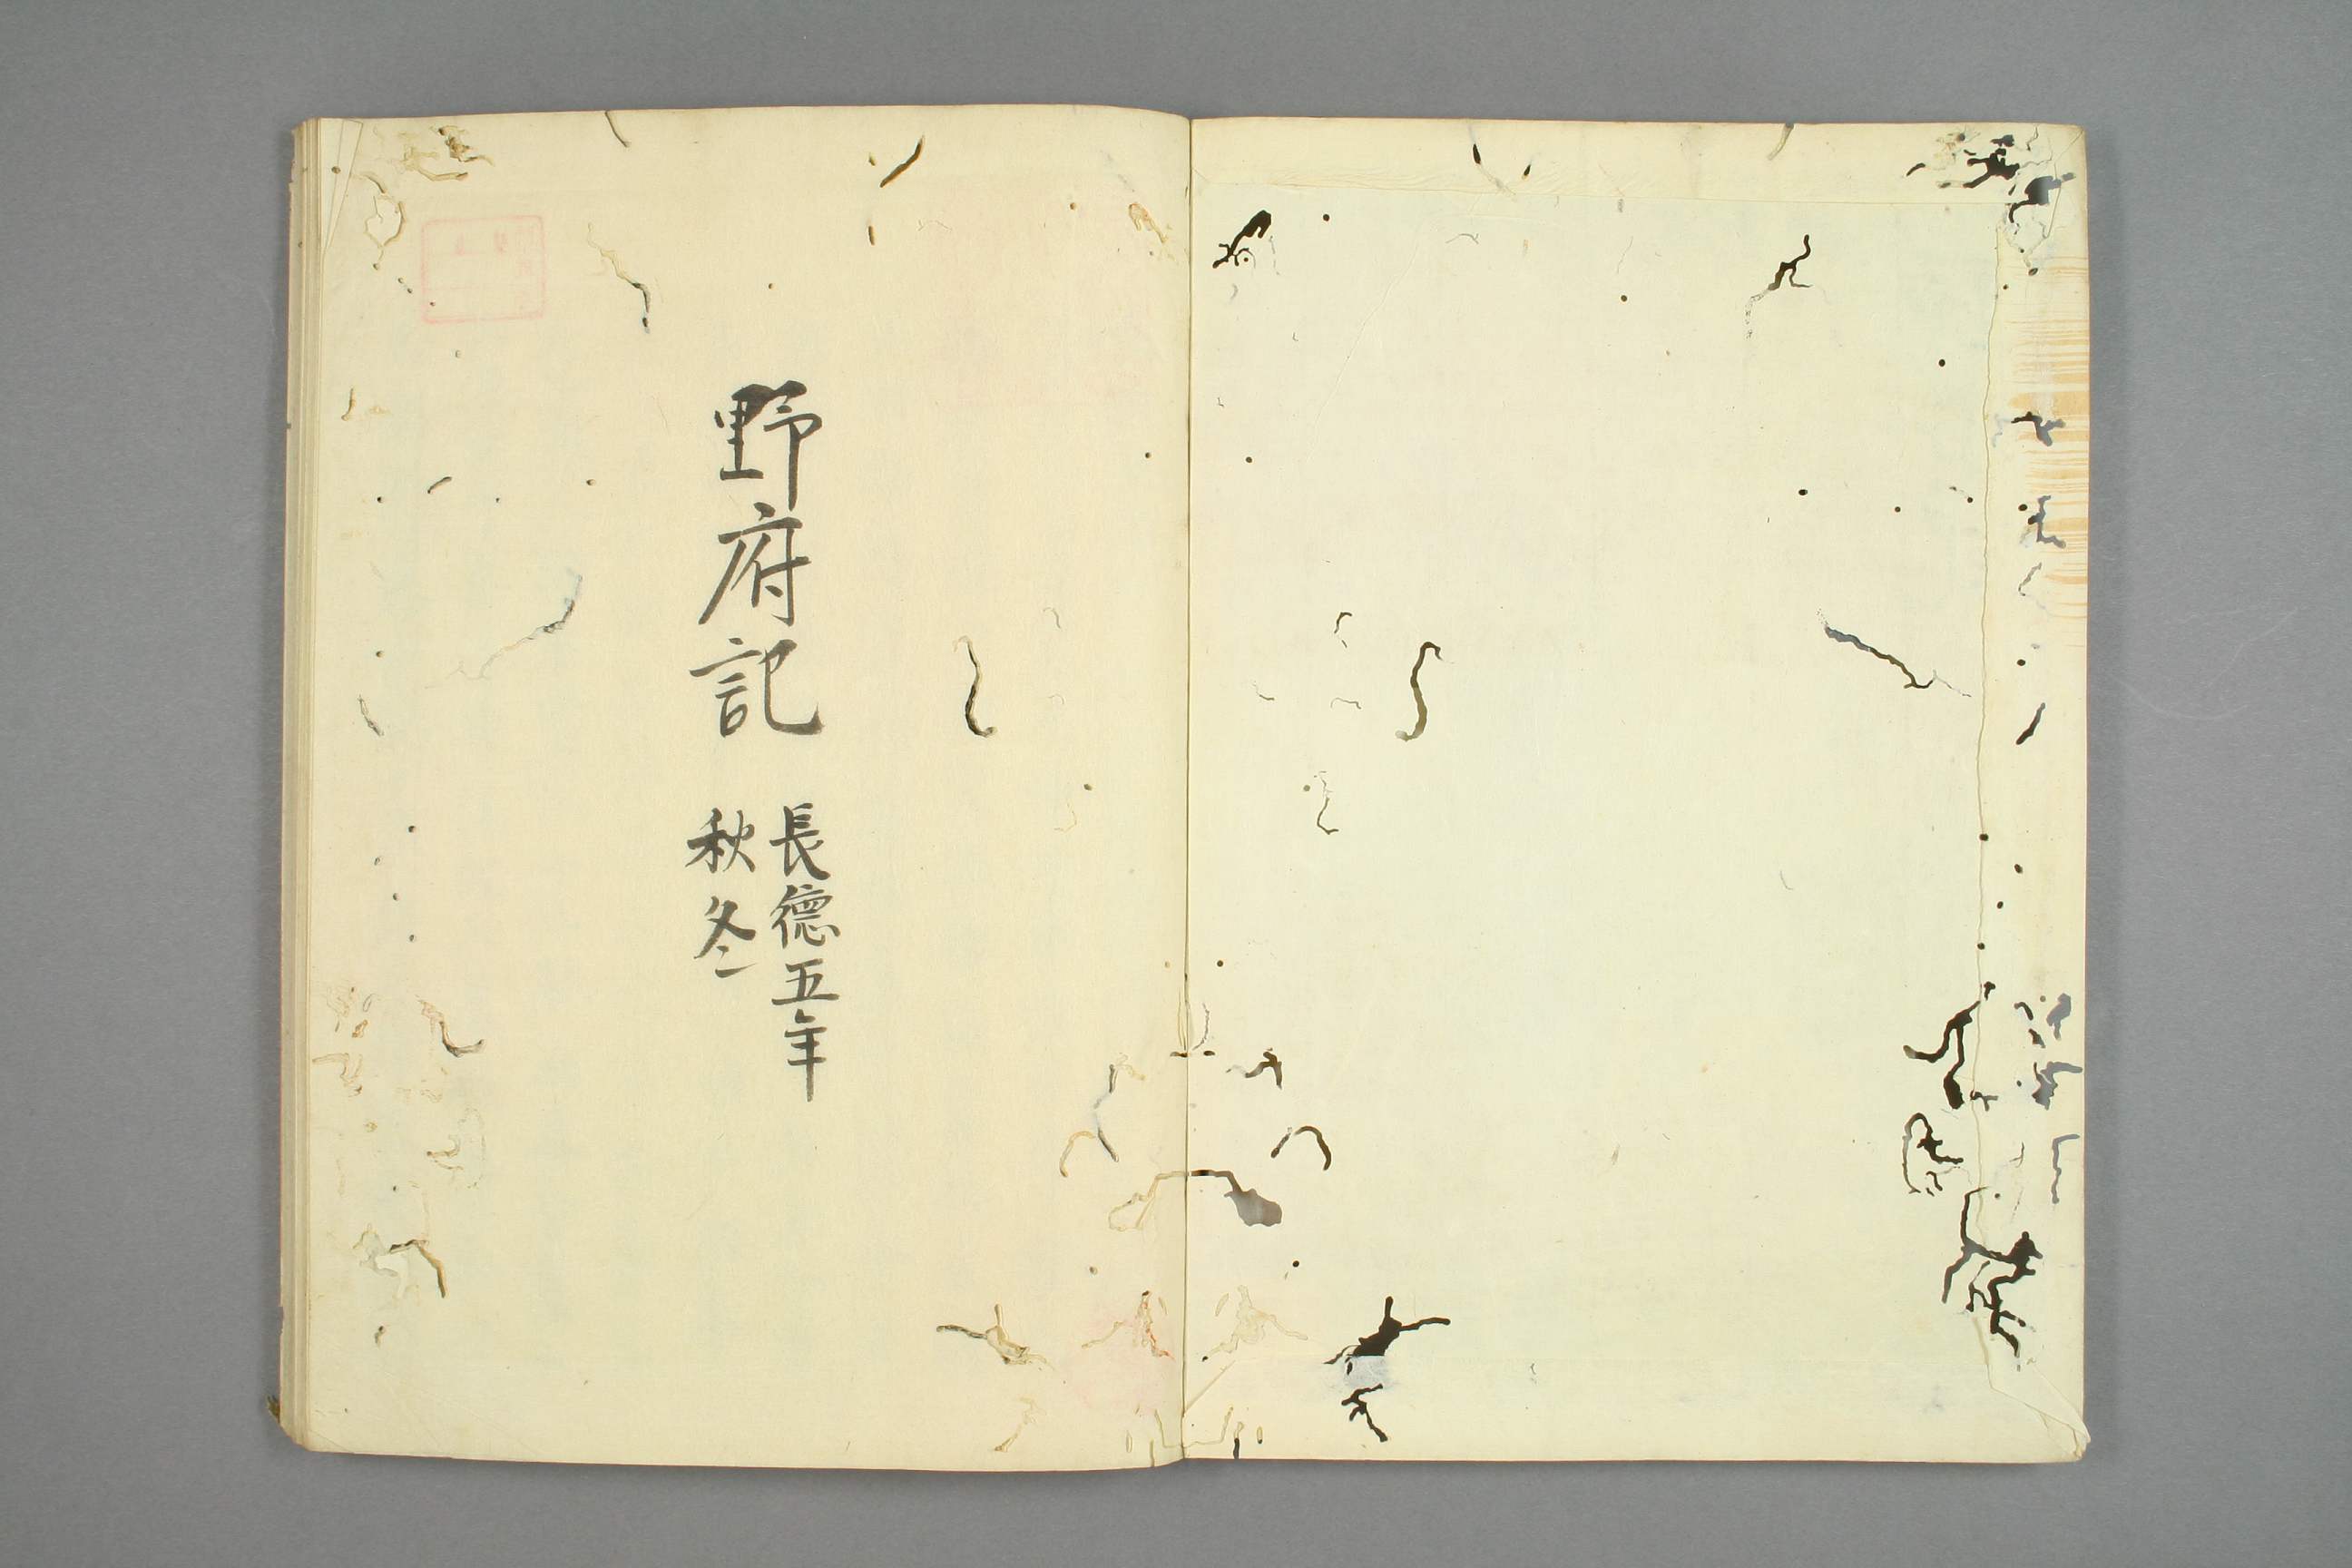 野府記
長德五年
秋冬